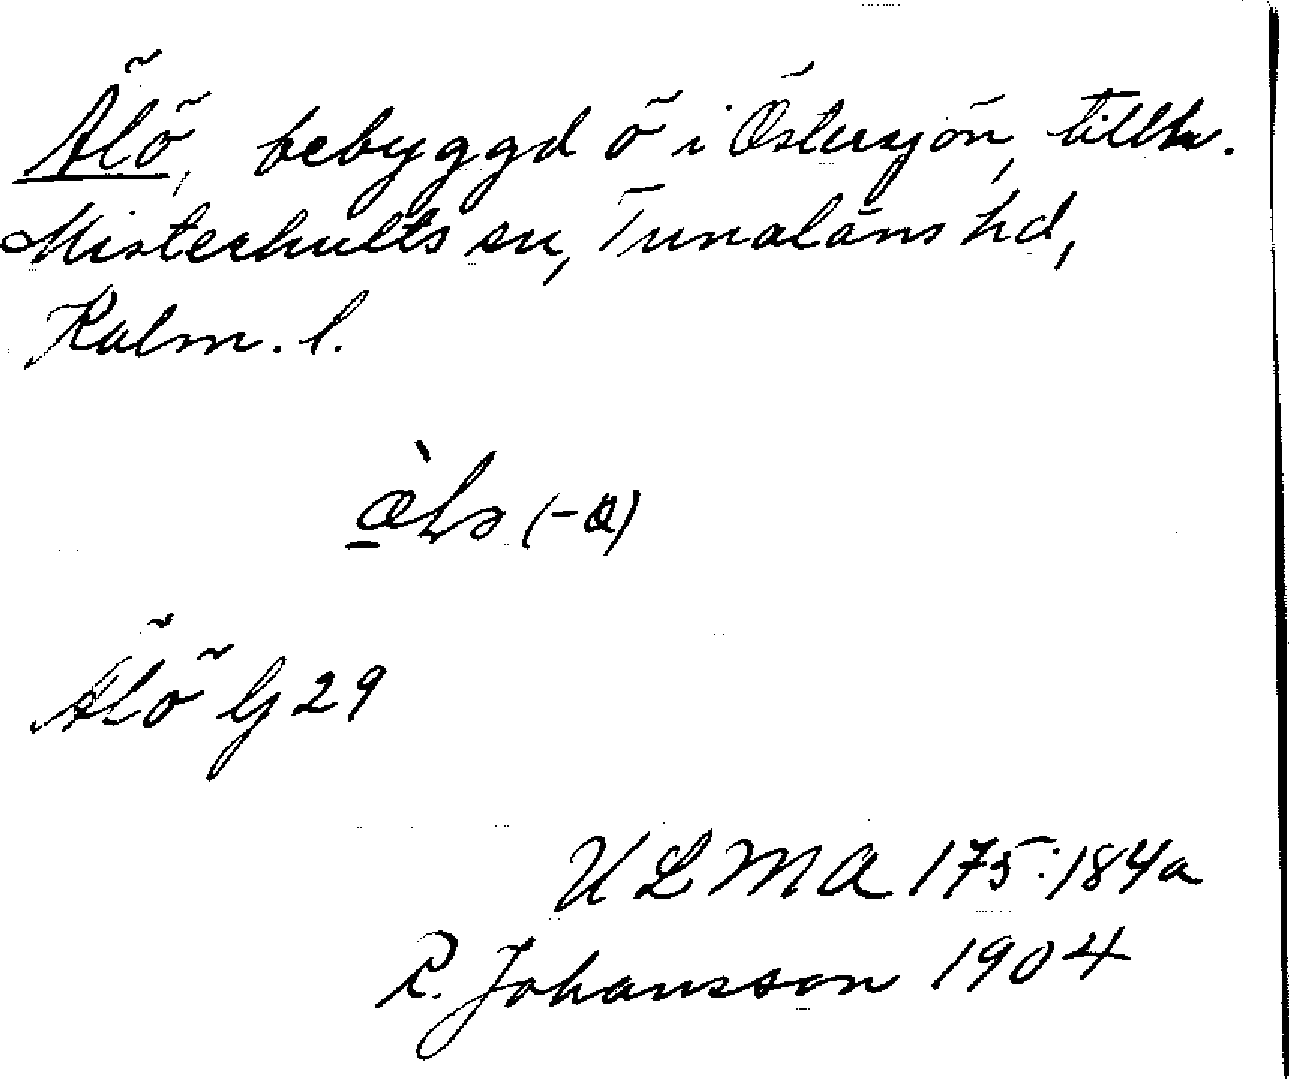 Älö, bebyggd ö i Östersjön, tillhr.
Misterhults sn, Tunaläns hd,
Kalm. l.
Älö G 29
ULMA 175:184a
R. Johansson 1904